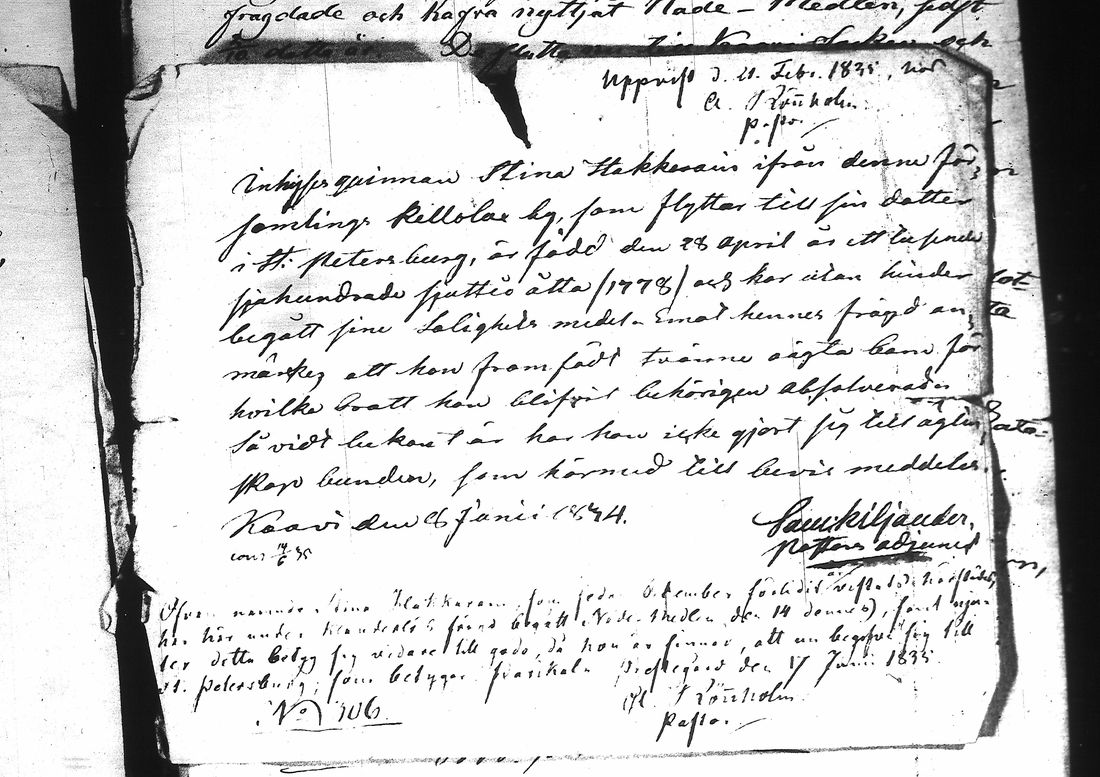 frägdade och Kağra nyttjat Nåde-Medlen, sidst
Uppvist d. 21. Febr. 1835, hos
A. J Rönholm.
pastor.
Inhyses qvinnan Stina Hakkarain ifrån denne för,
samlings Kellolax by, som flyttar till sin datter
i St: Petersburg, är född den 28 april år ett tusende
sjuhundrade sjuttio åtta (1778) och har utan hinder
begått sine Salighets medel. Emot hennes frägd an,
märkes att hon framfödt tvänne oägta barn för
hvilka brott hon blifvit behörigen absolverad.
Så vidt bekant är har hon icke gjort sig till ägten,
skap bunden, som härmed till bevis meddelas.
Kaavi den 8 Junii 1834.
Sam: Kiljander,
Pastors adjunct
cons 14/6 35
Ofvan nämnde Stina Hakkarain, som sedan October förledit år vistats härstädes,
har här under klanderlös frägd begått Nåde-Medlen den 14 dennes, samt nju-
ter detta betyg sig vidare till godo, då hon är sinnad, att nu begifva sig till
St. Petersburg; som betygar Prestegård den 17 Junii 1835.
A. J Rönholm.
Pastor.
No 106.